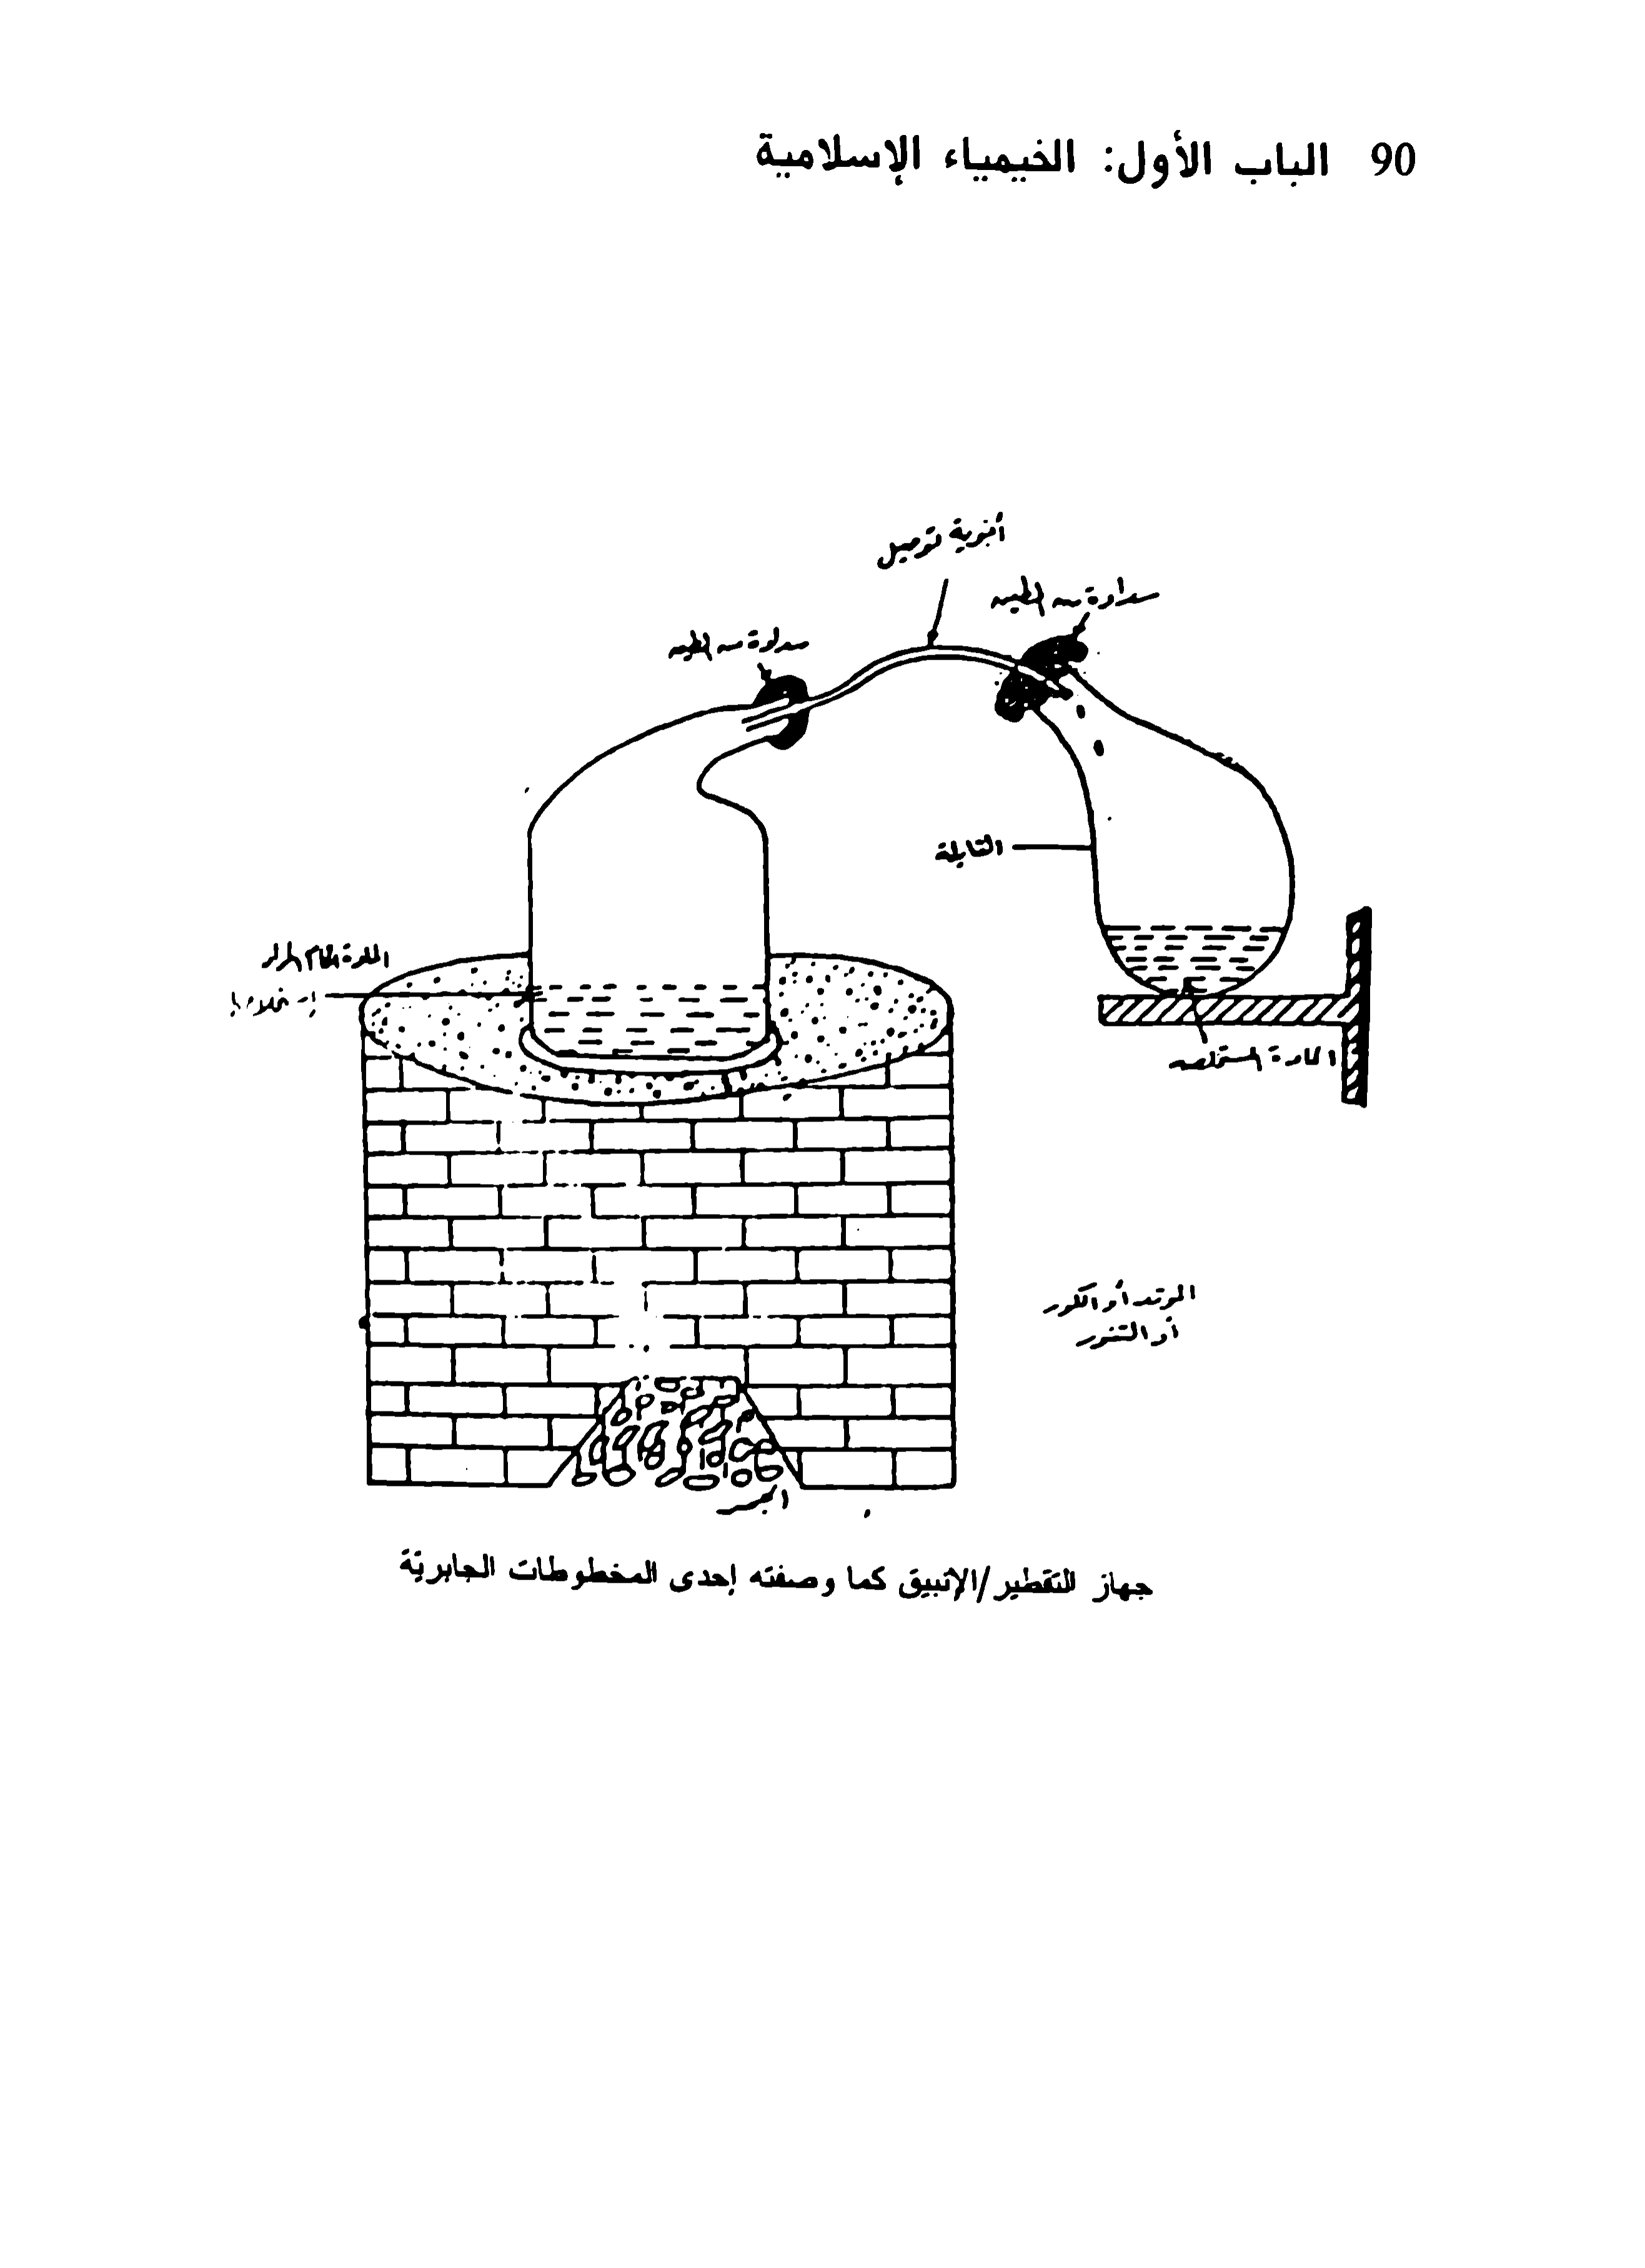 90 الباب الأول: الخيمياء الإسلامية
أنبوبة توصيل
سدادة من الطين
سدادة من الطين
القابلة
المادة الخام المراد
إستخلاصها
المادة المستخلصة
الموقد أو الكور
أو التنور
الجمر
جهاز للتقطير/الإنبيق كما وصفته إحدى المخطوطات الجابريّة